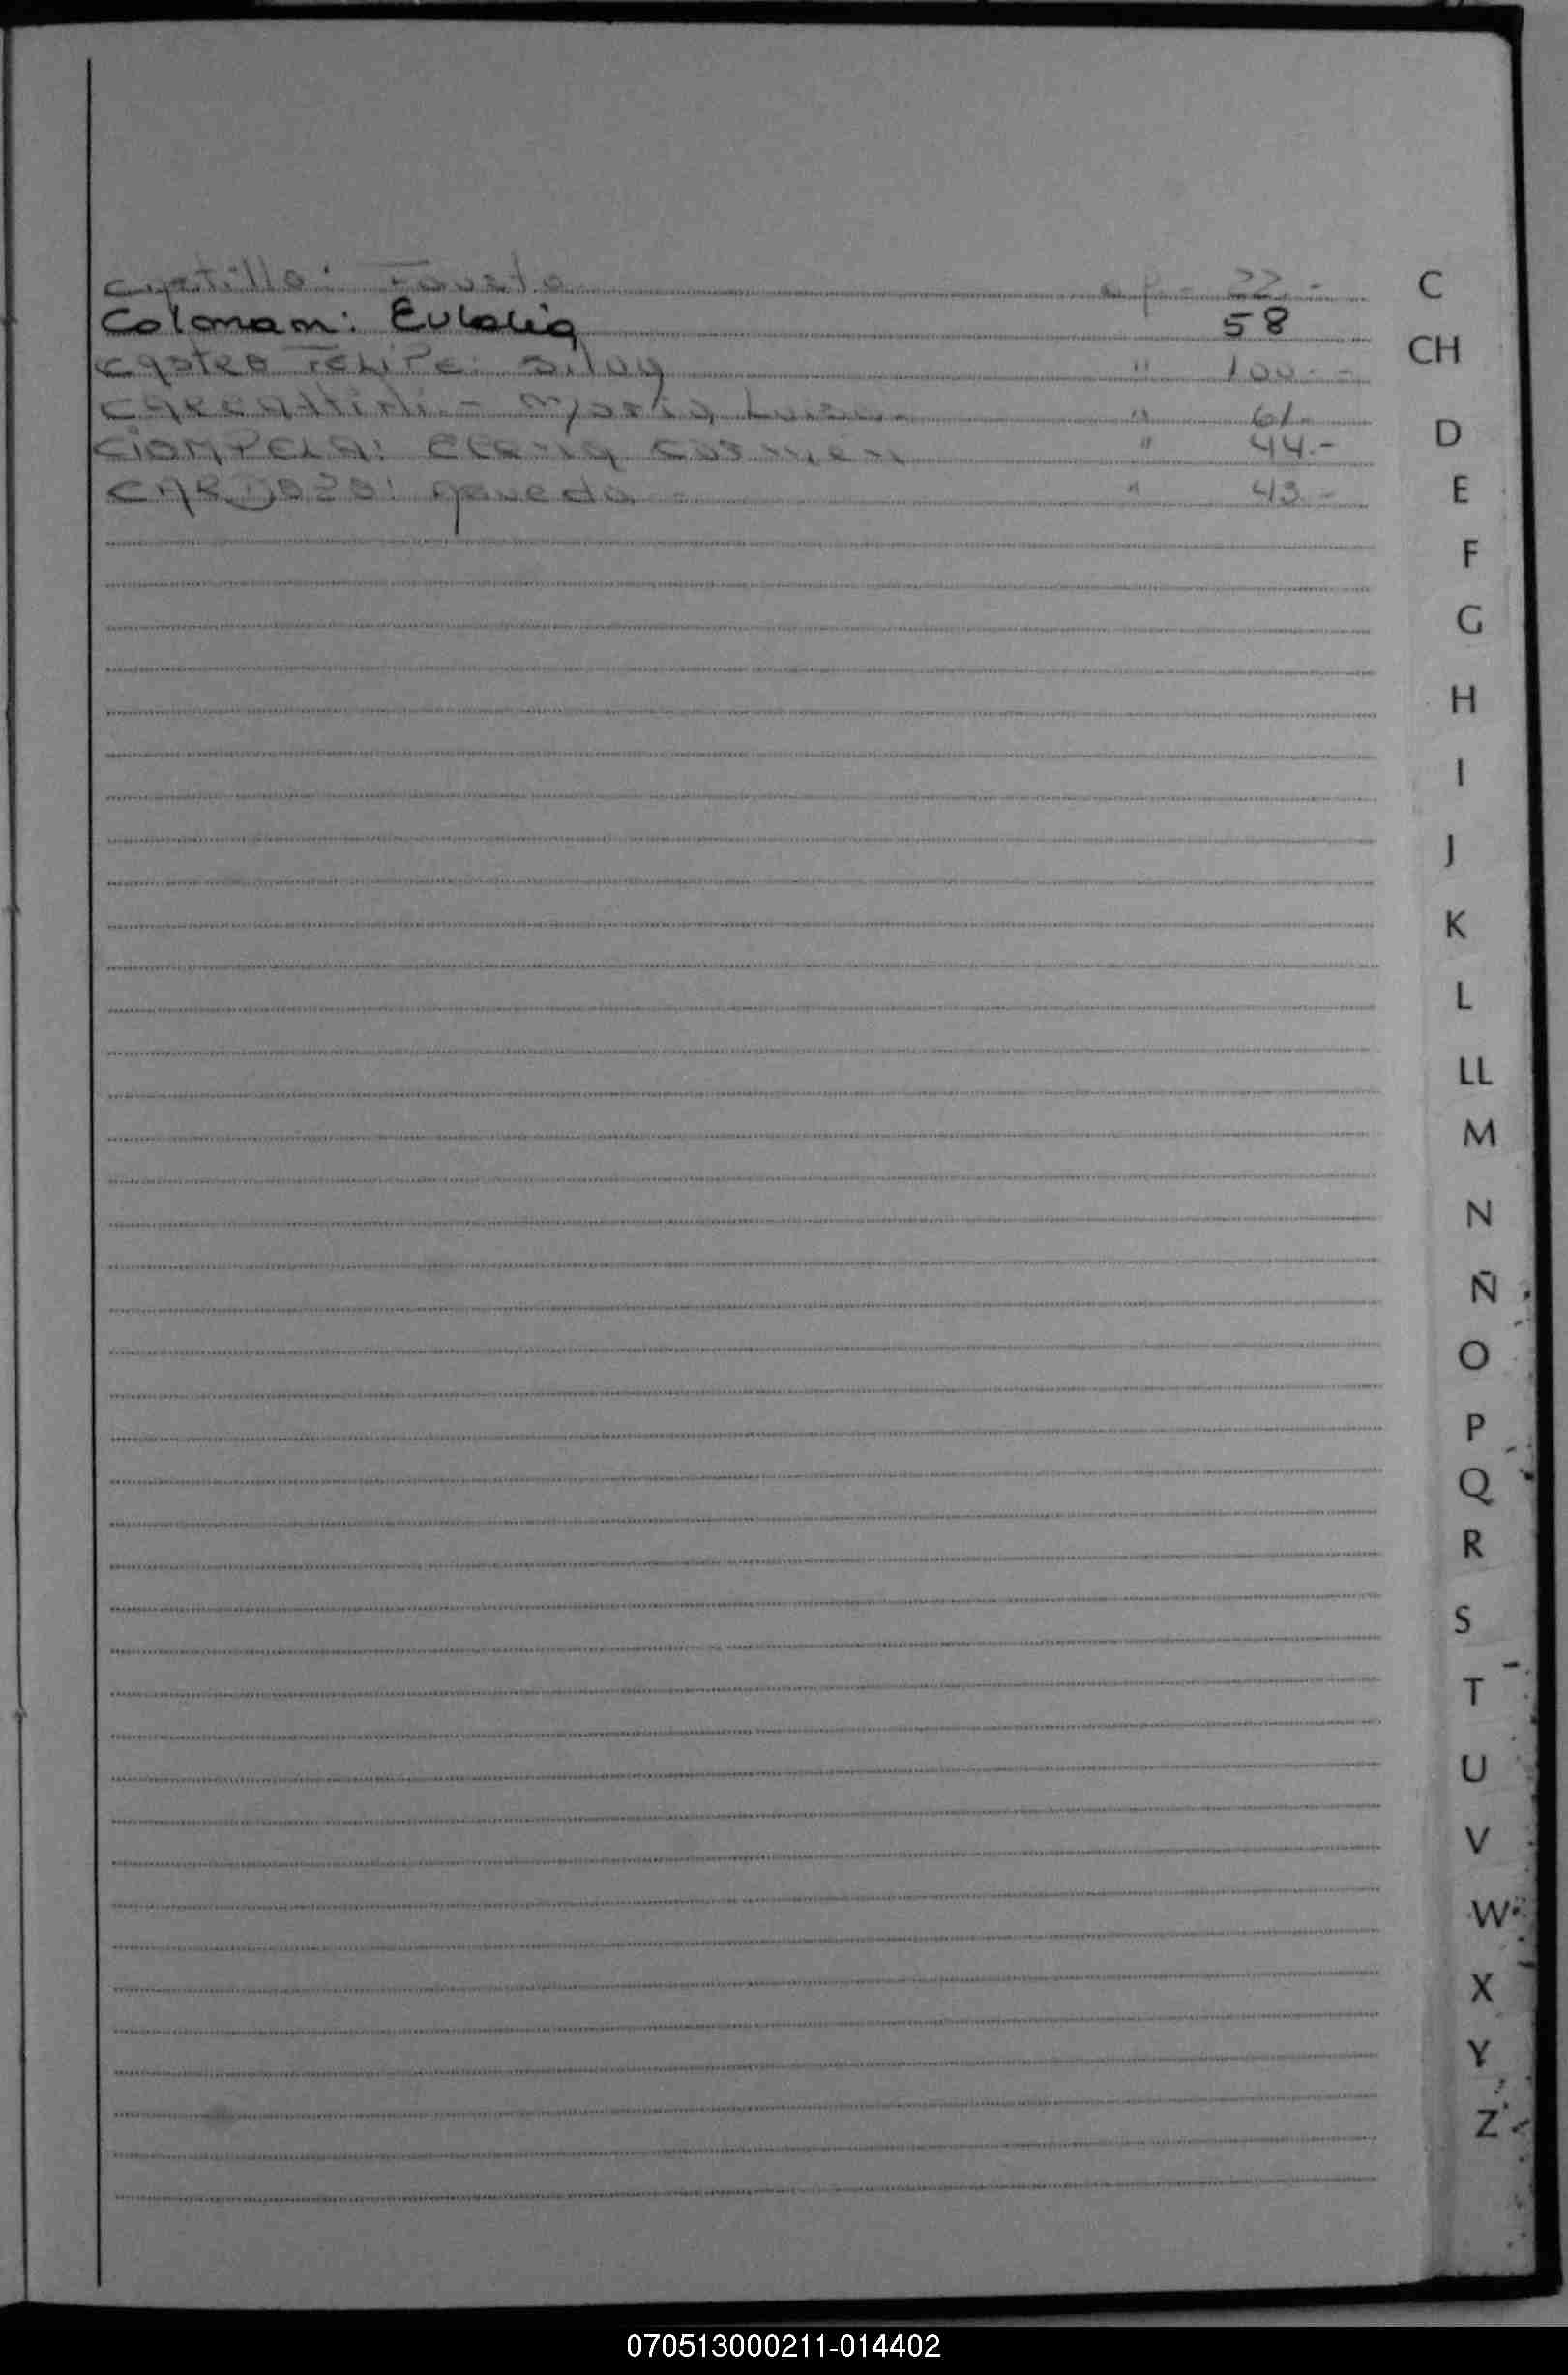 Castillo: Fausto a f. - 22.-
Coloman: Eulalia 58
Castro Felipe: Siloy " 100.-
Carrattini - María Luisa " 61.-
CIOMPELA: Elena Carmen " 44.-
CARDOZO: " 43.-
C
CH
D
E
F
G
H
I
J
K
L
LL
M
N
Ñ
O
P
Q
R
S
T
U
V
W
X
Y
Z
070513000211-014402